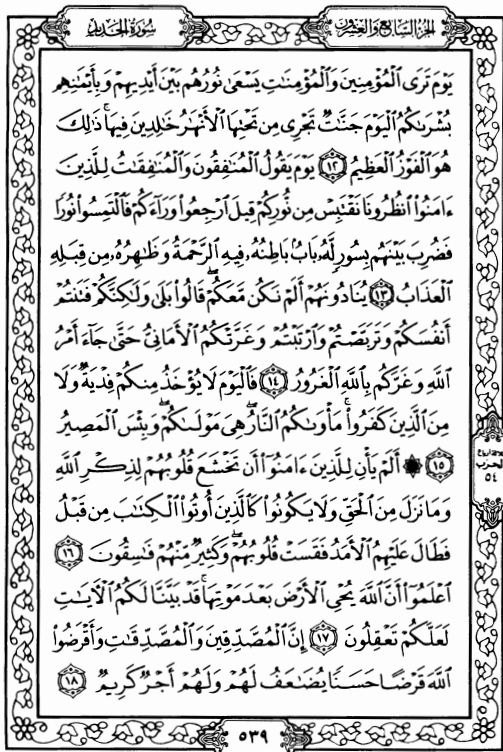 سُورَةُ الحَدِيدِ
الجُزءُ السَّابِعُ وَالعِشرُونَ
يَوْمَ تَرَى ٱلْمُؤْمِنِينَ وَٱلْمُؤْمِنَٰتِ يَسْعَىٰ نُورُهُم بَيْنَ أَيْدِيهِمْ وَبِأَيْمَٰنِهِم
بُشْرَىٰكُمُ ٱلْيَوْمَ جَنَّٰتٌ تَجْرِى مِن تَحْتِهَا ٱلْأَنْهَٰرُ خَٰلِدِينَ فِيهَا ۚ ذَٰلِكَ
هُوَ ٱلْفَوْزُ ٱلْعَظِيمُ ١٢ يَوْمَ يَقُولُ ٱلْمُنَٰفِقُونَ وَٱلْمُنَٰفِقَٰتُ لِلَّذِينَ
ءَامَنُوا۟ ٱنظُرُونَا نَقْتَبِسْ مِن نُّورِكُمْ قِيلَ ٱرْجِعُوا۟ وَرَآءَكُمْ فَٱلْتَمِسُوا۟ نُورًا
فَضُرِبَ بَيْنَهُم بِسُورٍ لَّهُۥ بَابٌۢ بَاطِنُهُۥ فِيهِ ٱلرَّحْمَةُ وَظَٰهِرُهُۥ مِن قِبَلِهِ
ٱلْعَذَابُ ١٣ يُنَادُونَهُمْ أَلَمْ نَكُن مَّعَكُمْ ۖ قَالُوا۟ بَلَىٰ وَلَٰكِنَّكُمْ فَتَنتُمْ
أَنفُسَكُمْ وَتَرَبَّصْتُمْ وَٱرْتَبْتُمْ وَغَرَّتْكُمُ ٱلْأَمَانِىُّ حَتَّىٰ جَآءَ أَمْرُ
ٱللَّهِ وَغَرَّكُم بِٱللَّهِ ٱلْغَرُورُ ١٤ فَٱلْيَوْمَ لَا يُؤْخَذُ مِنكُمْ فِدْيَةٌ وَلَا
مِنَ ٱلَّذِينَ كَفَرُوا۟ ۚ مَأْوَىٰكُمُ ٱلنَّارُ ۖ هِىَ مَوْلَىٰكُمْ ۖ وَبِئْسَ ٱلْمَصِيرُ
١٥ ۞ أَلَمْ يَأْنِ لِلَّذِينَ ءَامَنُوٓا۟ أَن تَخْشَعَ قُلُوبُهُمْ لِذِكْرِ ٱللَّهِ
وَمَا نَزَلَ مِنَ ٱلْحَقِّ وَلَا يَكُونُوا۟ كَٱلَّذِينَ أُوتُوا۟ ٱلْكِتَٰبَ مِن قَبْلُ
فَطَالَ عَلَيْهِمُ ٱلْأَمَدُ فَقَسَتْ قُلُوبُهُمْ ۖ وَكَثِيرٌ مِّنْهُمْ فَٰسِقُونَ ١٦
ٱعْلَمُوٓا۟ أَنَّ ٱللَّهَ يُحْىِ ٱلْأَرْضَ بَعْدَ مَوْتِهَا ۚ قَدْ بَيَّنَّا لَكُمُ ٱلْءَايَٰتِ
لَعَلَّكُمْ تَعْقِلُونَ ١٧ إِنَّ ٱلْمُصَّدِّقِينَ وَٱلْمُصَّدِّقَٰتِ وَأَقْرَضُوا۟
ٱللَّهَ قَرْضًا حَسَنًا يُضَٰعَفُ لَهُمْ وَلَهُمْ أَجْرٌ كَرِيمٌ ١٨
الحزب
٥٤
٥٣٩